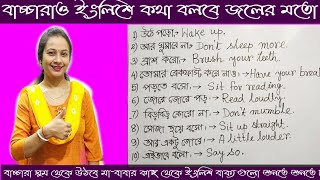 বাচ্চারাও ইংলিশে কথা বলবে জলের মতো
১) উঠে পড়ো- Wake up.
২) আর ঘুমাবে না- Don't sleep more.
৩) ব্রাশ করো- Brush your teeth.
৪) তোমার ব্রেকফাস্ট করে নাও- Have your break
৫) পড়তে বসো- Sit for reading.
৬) জোরে জোরে পড়- Read loudly.
৭) বিড়বিড় কোরো না- Don't mumble.
৮) সোজা হয়ে বসো- Sit up straight.
৯) আর একটু জোরে- A little louder.
১০) এইভাবে বলো- Say so.
বাচ্চারা ঘুম থেকে উঠবে মা-বাবার কাছ থেকে ইংলিশ বাক্য গুলো শুনতে শুনতে